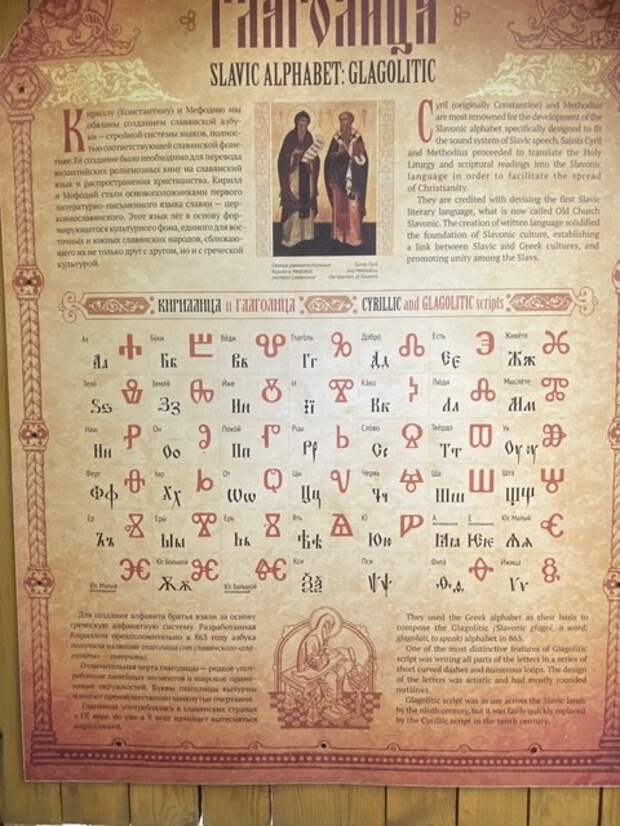 ГЛАГОЛИЦА
SLAVIC ALPHABET: GLAGOLITIC
Кириллу (Константину) и Мефодию мы
обязаны созданием славянской азбу-
ки — стройной системы знаков, полнос-
тью соответствующей славянской фоне-
тике. Её создание было необходимо для перевода
византийских религиозных книг на славянский
язык и распространения христианства. Кирилл
и Мефодий стали основоположниками первого
литературно-письменного языка славян — цер-
ковнославянского. Этот язык лёг в основу фор-
мирующегося культурного фона, единого для вос-
точных и южных славянских народов, сближаю-
щего их не только друг с другом, но и с греческой
культурой.
Святые равноапостольные
Кирилл и Мефодий,
учители Словенские
Saints Cyril
and Methodius,
the teachers of Slavonia
Cyril (originally Constantine) and Methodius
are most renowned for the development of the
Slavonic alphabet specifically designed to fit
the sound system of Slavic speech. Saints Cyril
and Methodius proceeded to translate the Holy
Liturgy and scriptural readings into the Slavonic
language in order to facilitate the spread
of Christianity.
They are credited with devising the first Slavic
literary language, what is now called Old Church
Slavonic. The creation of written language solidified
the foundation of Slavonic culture, establishing
a link between Slavic and Greek cultures, and
promoting unity among the Slavs.
КИРИЛЛИЦА и ГЛАГОЛИЦА CYRILLIC and GLAGOLITIC scripts
Аз Буки Веди Глаголь Добро Есть Живете
Аа Ⰰ Бб Ⰱ Вв Ⰲ Гг Ⰳ Дд Ⰴ Єє Ⰵ Жж Ⰶ
Зело Земля Иже И Како Люди Мыслете
Ѕѕ Ⰷ Зз Ⰸ Ии Її Кк Ⰽ Лл Ⰾ Мм Ⰿ
Наш Он Покой Рцы Слово Твердо Ук
Нн Ⱀ Оо Ⱁ Пп Ⱂ Рр Ⱃ Сс Ⱄ Тт Ⱅ Ѹѹ Ⱆ
Ферт Хер От Цы Червь Ша Шта
Фф Ⱇ Хх Ⱈ Ѡѡ Ⱉ Цц Ⱌ Чч Ⱍ Шш Ⱎ Щщ Ⱋ
Ер Еры Ерь Ять Ю А Е Юс Малый
Ъъ Ыы Ьь Ѣѣ Ⱑ Юю Ⱓ Ꙗꙗ Ѥѥ Ѧѧ Ⱔ
Юс Малый Юс Большой Юс Большой Кси Пси Фита Ижица
Ⱗ Ѫѫ Ⱘ Ⱙ Ѯѯ Ѱѱ Ѳѳ Ⱚ Ѵѵ Ⱛ
Для создания алфавита братья взяли за основу
греческую алфавитную систему. Разработанная
Кириллом предположительно в 863 году азбука
получила название глаголица (от славянского «гла-
голати» — говорить).
Отличительная черта глаголицы — редкое упот-
ребление линейных элементов и широкое приме-
нение окружностей. Буквы глаголицы вычурны
и имеют преимущественно замкнутые очертания.
Глаголица употреблялась в славянских странах
в IX веке, но уже в X веке начинает вытесняться
кириллицей.
They used the Greek alphabet as their basis to
compose the Glagolitic (Slavonic glagol, a word;
glagolati, to speak) alphabet in 863.
One of the most distinctive features of Glagolitic
script was writing all parts of the letters in a series of
short curved dashes and numerous loops. The design
of the letters was artistic and had mostly rounded
outlines.
Glagolitic script was in use across the Slavic lands
by the ninth century, but it was fairly quickly replaced
by the Cyrillic script in the tenth century.